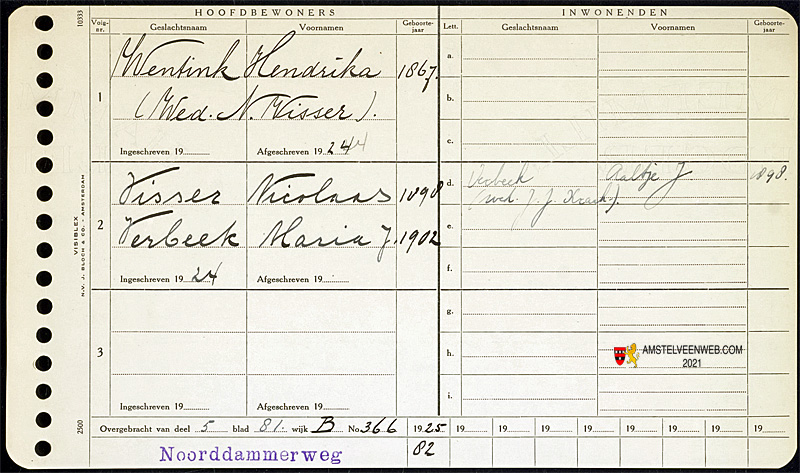 HOOFDBEWONERS
INWONENDEN
Volg-nr. Geslachtsnaam Voornamen Geboorte-jaar
Lett. Geslachtsnaam Voornamen Geboorte-jaar
1
Wentink Hendrika 1867
(Wed. N. Visser).
Ingeschreven 19 Afgeschreven 19 24
a.
b.
c.
2
Visser Nicolaas 1898
Verbeek Maria J. 1902
Ingeschreven 19 24 Afgeschreven 19
d. Verbeek Aaltje J 1898.
(wed. J. J.
e.
f.
3
Ingeschreven 19 Afgeschreven 19
g.
h.
i.
AMSTELVEENWEB.COM
2021
Overgebracht van deel 5 blad 81. wijk B No 366 1925 19 19 19 19 19 19 19 19
Noorddammerweg 82
10333
VISIBLEX
N.V. J. BLOCH & CO. - AMSTERDAM
2500